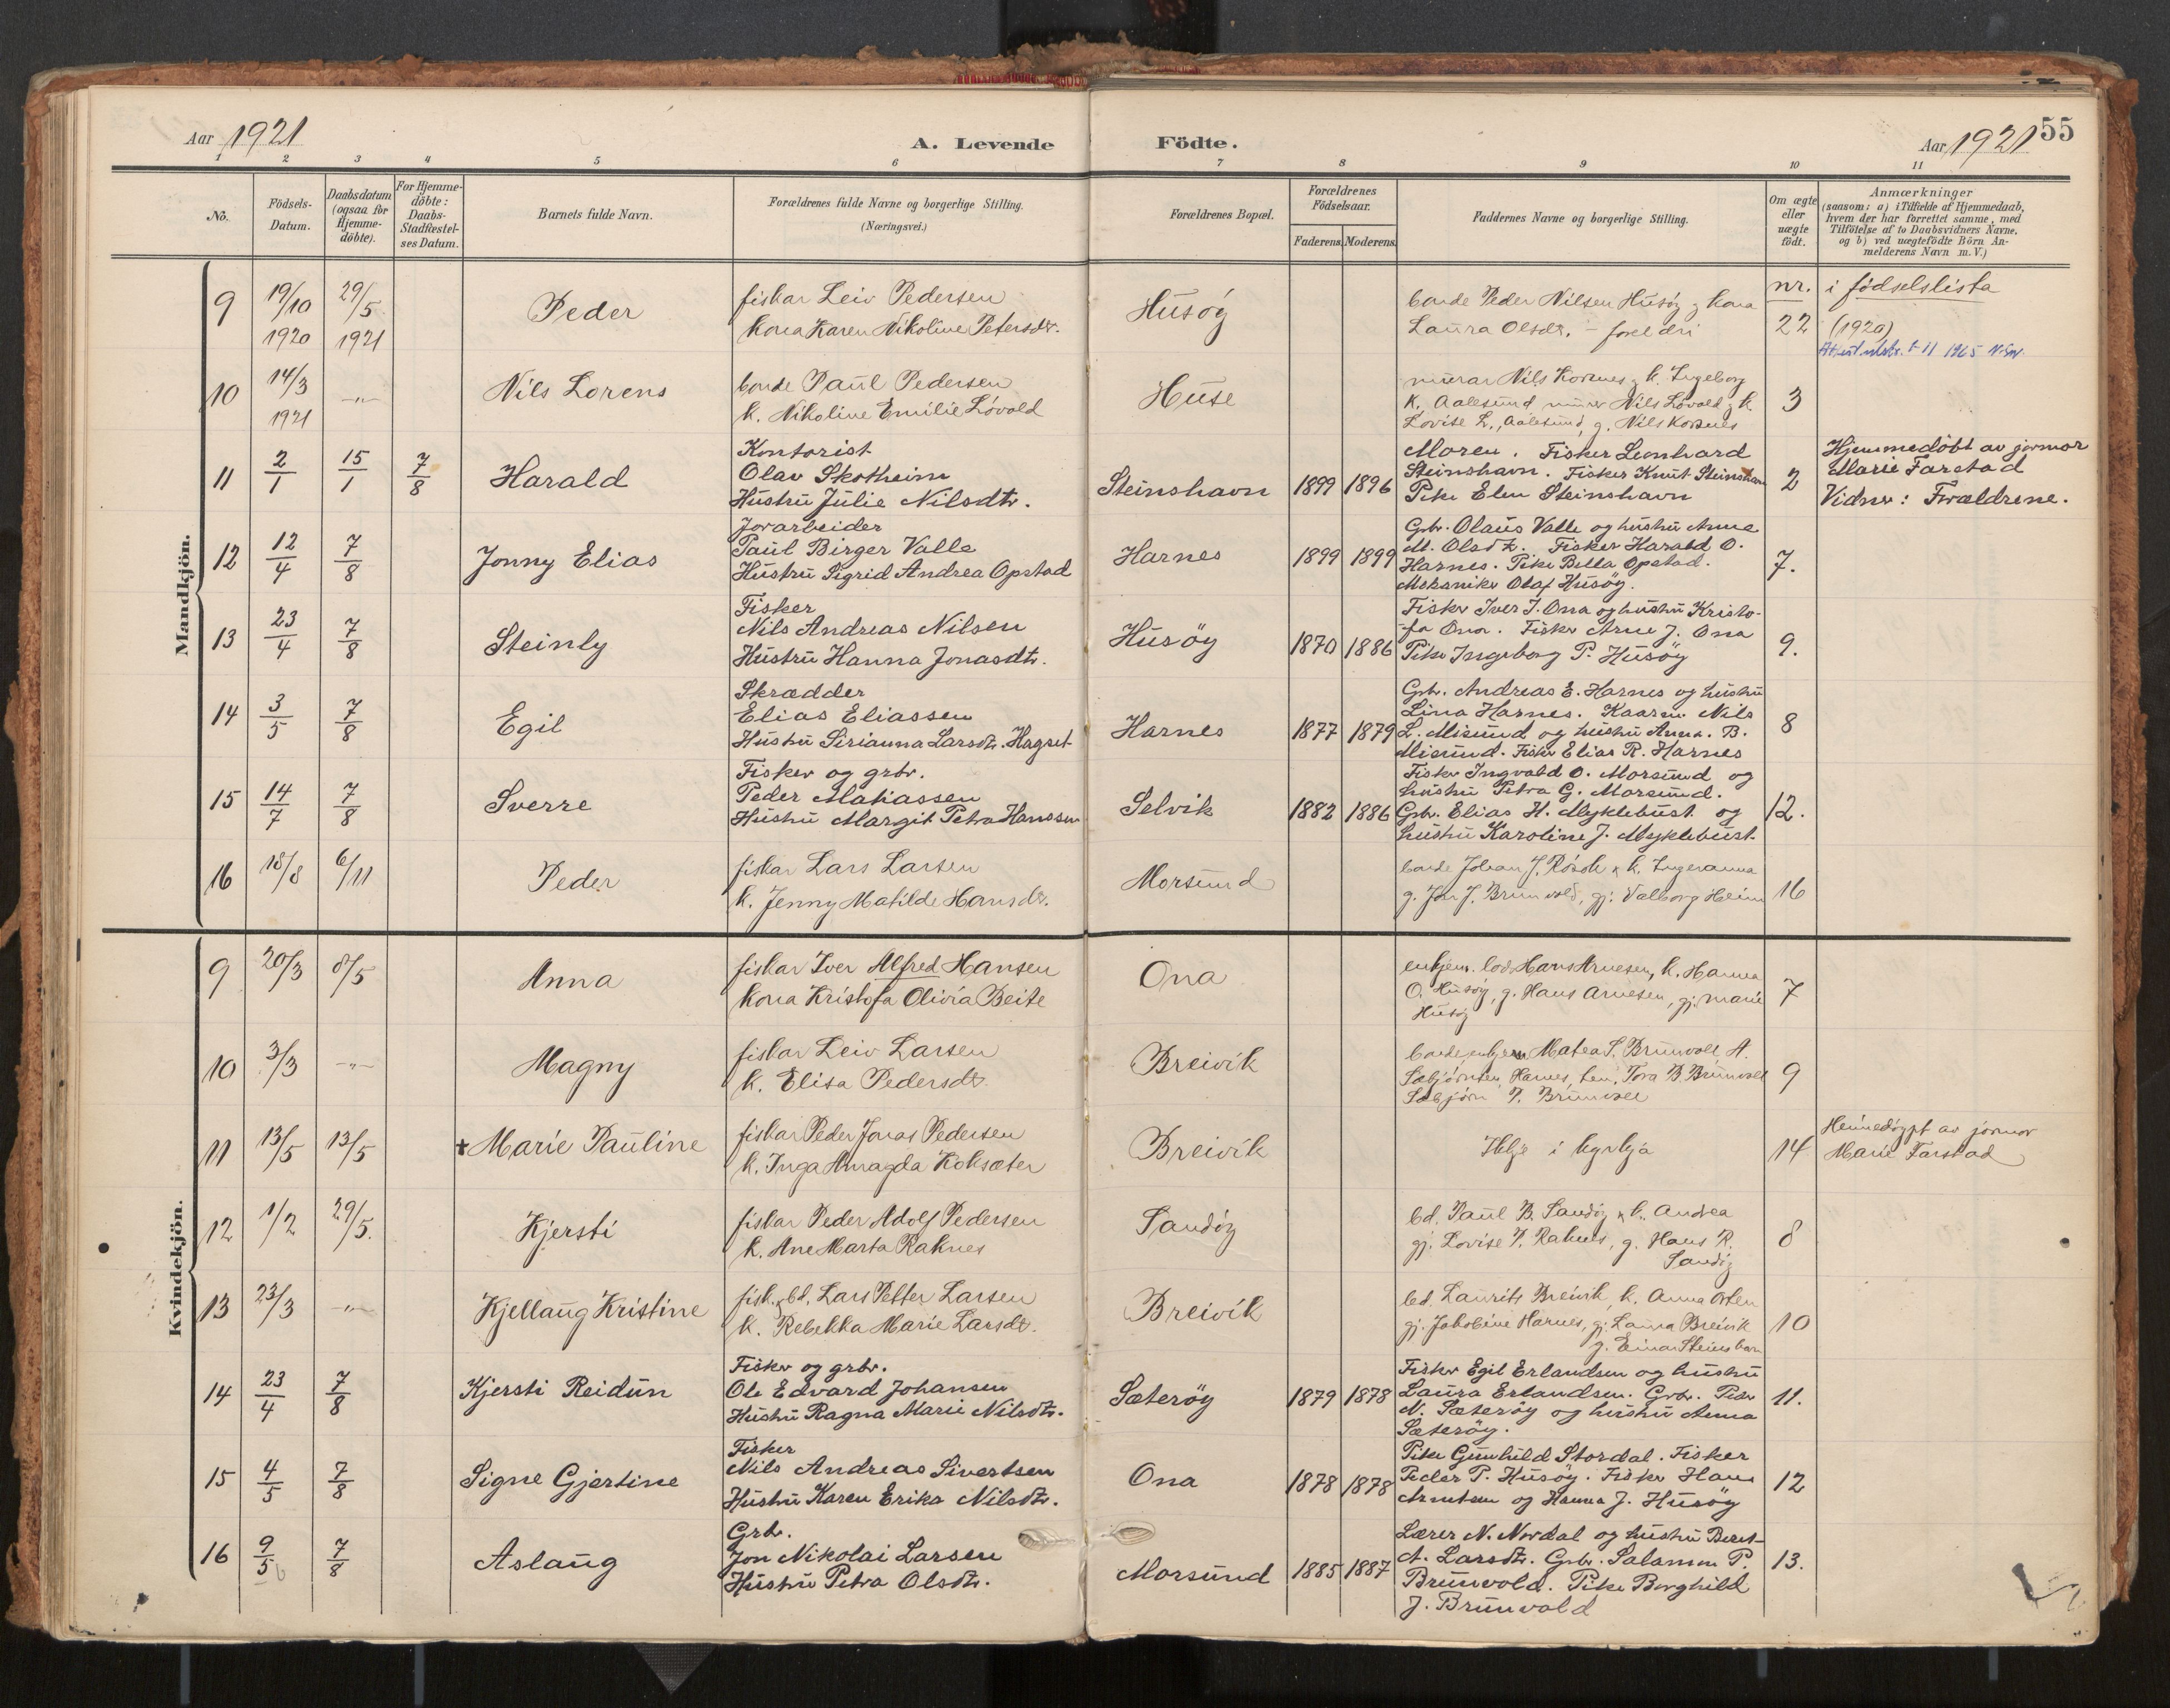 Aar 1921
A. Levende Födte.
Aar 1921 55
1 2 3 4 5 6 7 8 9 10 11
No. Födsels-Datum. Daabsdatum (ogsaa for Hjemme-döbte). For Hjemme-döbte: Daabs-Stadfæstel-ses Datum. Barnets fulde Navn. Forældrenes fulde Navne og borgerlige Stilling. (Næringsvei.) Forældrenes Bopæl. Forældrenes Födselsaar. Faderens. Moderens. Faddernes Navne og borgerlige Stilling. Om ægte eller uægte födt. Anmærkninger (saasom: a) i Tilfælde af Hjemmedaab, hvem der har forrettet samme, med Tilföielse af to Daabsvidners Navne, og b) ved uægtefödte Börn Anmelderens Navn m.V.)
Mandkjön.
9 19/10 1920 29/5 1921 Peder
fiskar Leiv Pedersen
kona Karen Nikoline Petersdr.
Husøy
bonde Peder Nilsen Husøy og kona
Laura Olsdr. - foreldri
nr. 22 i fødselslista
(1920)
10 14/3 1921 -"- Nils Lorens
bonde Paul Pedersen
k. Nikoline Emilie Løvold
Huse
murar Nils Korsnes, k. Ingeborg
K. Aalesund, murer Nils Løvold og k.
Lovise L., Aalesund, g. Nils Korsnes
3
11 2/1 15/1 7/8 Harald
Kontorist
Olav Skotheim
Hustru Julie Nilsdtr.
Steinshavn 1899 1896
Moren. Fisker Leonhard
Steinshavn. Fisker Knut Steinshavn
Pike Elen Steinshavn
2
Hjemmedöbt av jormor
Marie Farstad
Vidner: Forældrene.
12 12/4 7/8 Jonny Elias
Jorarbeider
Paul Birger Valle
Hustru Sigrid Andrea Opstad
Harnes 1899 1899
Grbr. Olaus Valle og hustru Anne
M. Olsdtr. Fisker Harald O.
Harnes. Pike Bella Opstad.
Mekaniker Olaf Husöy.
7.
13 23/4 7/8 Steinly
Fisker
Nils Andreas Nilsen
Hustru Hanna Jonasdtr.
Husöy 1870 1886
Fisker Iver J. Ona og hustru Kristo-
fa Ona. Fisker Arne J. Ona
Pike Ingeborg P. Husöy
9.
14 3/5 7/8 Egil
Skrædder
Elias Eliassen
Hustru Sirianna Larsdtr. Hagset
Harnes 1877 1879
Grbr. Andreas E. Harnes og hustru
Lina Harnes. Nils
L. Misund og hustru Anna. B.
Misund. Fisker Elias R. Harnes
8
15 14/7 7/8 Sverre
Fisker og grbr.
Peder Matiassen
Hustru Margit Petra Hanssen
Selvik 1882 1886
Fisker Ingvald O. Morsund og
hustru Petra G. Morsund.
Grbr. Elias H. Myklebust og
hustru Karoline J. Myklebust.
12.
16 18/8 6/11 Peder
fiskar Lars Larsen
k. Jenny Matilde Hansdr.
Morsund
bonde Johan J. Røsok & k. Ingeranna
g. Jon J. Brunvold, gj. Valborg Heim
16
Kvindekjön.
9 20/3 8/5 Anna
fiskar Iver Alfred Hansen
kona Kristofa Olivia Beite
Ona
Hans Arnesen, k. Hanna
O. Husøy, g. Hans Arnesen, gj. Marie
Husøy
7
10 3/3 -"- Magny
fiskar Leiv Larsen
k. Elisa Pedersdr.
Breivik
Matea S. Brunvoll, A.
Sæbjørnsen, Harnes, Tora B. Brunvoll
Sæbjørn P. Brunvoll
9
11 13/5 13/5 † Marie Pauline
fiskar Peder Jonas Pedersen
k. Inga Amagda Koksæter
Breivik
Ikkje i kyrkja
14
Heimedøypt av jormor
Marie Farstad
12 1/2 29/5. Kjersti
fiskar Peder Adolf Pedersen
k. Ane Marta Raknes
Sandøy
bd. Paul B. Sandøy & k. Andrea
gj. Lovise P. Raknes, g. Hans R.
Sandøy
8
13 23/3 -"- Kjellaug Kristine
fisk. & bd. Lars Petter Larsen
k. Rebekka Marie Larsdr.
Breivik
bd. Laurits Breivik, k. Anna Orten
gj. Jakobine Harnes, gj. Laura Breivik
g. Einar Steinshavn
10
14 23/4 7/8 Kjersti Reidun
Fisker og grbr.
Ole Edvard Johansen
Hustru Ragna Marie Nilsdtr.
Sæteröy 1879 1878
Fisker Egil Erlandsen og hustru
Laura Erlandsen. Grbr. Peder
N. Sæteröy og hustru Anna
Sæteröy.
11.
15 4/5 7/8 Signe Gjertine
Fisker
Nils Andreas Sivertsen
Hustru Karen Erika Nilsdtr.
Ona 1878 1878
Pike Gunhild Stordal. Fisker
Peder P. Husöy. Fisker Hans
Arntsen og Hanna J. Husöy
12
16 9/5 7/8 Aslaug
Grbr.
Jon Nikolai Larsen
Hustru Petra Olsdtr.
Morsund 1885 1887
Lærer N. Nordal og hustru Beret-
A. Larsdtr. Grbr. Salamon P.
Brunvold. Pike Borghild
J. Brunvold
13.